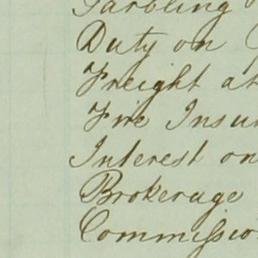 Garbling
Duty on
Freight at
Fire Insu
Interest on
Brokerage
Commissio